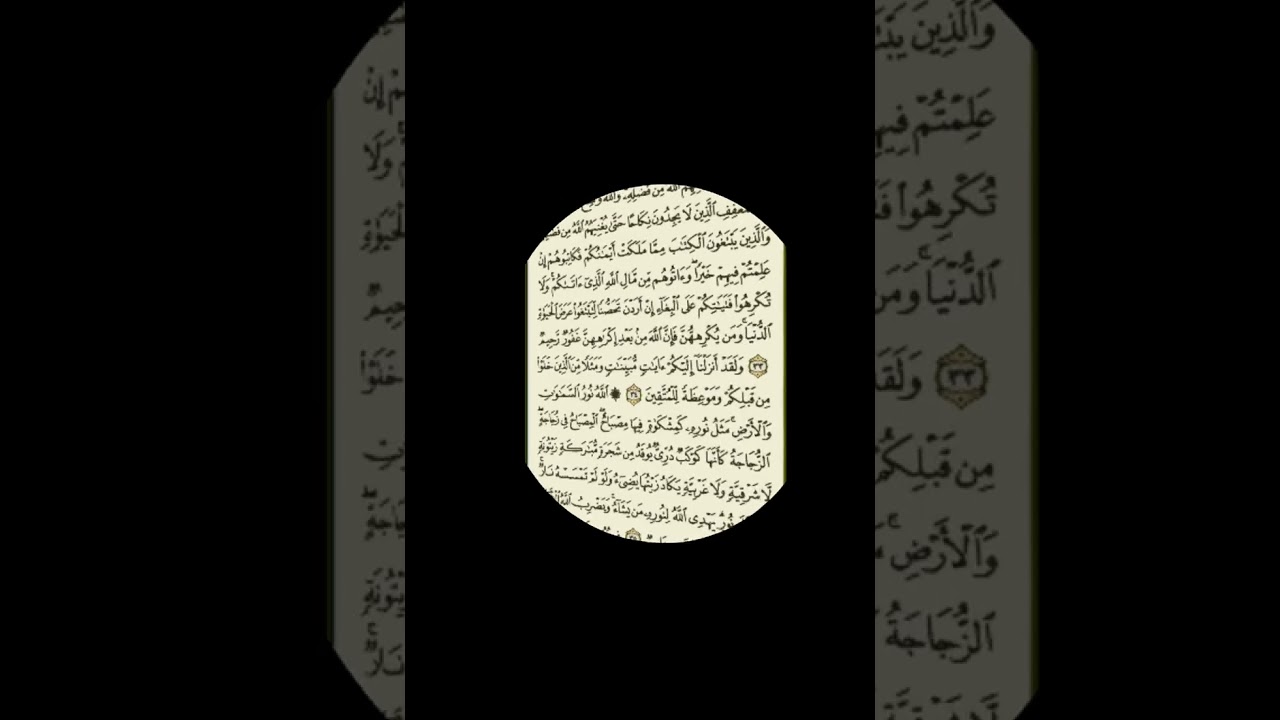 مِن فَضْلِهِۦ وَٱللَّهُ
ٱلَّذِينَ لَا يَجِدُونَ نِكَاحًا حَتَّىٰ يُغْنِيَهُمُ ٱللَّهُ مِن
وَٱلَّذِينَ يَبْتَغُونَ ٱلْكِتَٰبَ مِمَّا مَلَكَتْ أَيْمَٰنُكُمْ فَكَاتِبُوهُمْ إِنْ
عَلِمْتُمْ فِيهِمْ خَيْرًا ۖ وَءَاتُوهُم مِّن مَّالِ ٱللَّهِ ٱلَّذِىٓ ءَاتَىٰكُمْ ۚ وَلَا
تُكْرِهُوا۟ فَتَيَٰتِكُمْ عَلَى ٱلْبِغَآءِ إِنْ أَرَدْنَ تَحَصُّنًا لِّتَبْتَغُوا۟ عَرَضَ ٱلْحَيَوٰةِ
ٱلدُّنْيَا ۚ وَمَن يُكْرِههُّنَّ فَإِنَّ ٱللَّهَ مِنۢ بَعْدِ إِكْرَٰهِهِنَّ غَفُورٌ رَّحِيمٌ
٣٣ وَلَقَدْ أَنزَلْنَآ إِلَيْكُمْ ءَايَٰتٍ مُّبَيِّنَٰتٍ وَمَثَلًا مِّنَ ٱلَّذِينَ خَلَوْا۟
مِن قَبْلِكُمْ وَمَوْعِظَةً لِّلْمُتَّقِينَ ٣٤ ۞ ٱللَّهُ نُورُ ٱلسَّمَٰوَٰتِ
وَٱلْأَرْضِ ۚ مَثَلُ نُورِهِۦ كَمِشْكَوٰةٍ فِيهَا مِصْبَاحٌ ۖ ٱلْمِصْبَاحُ فِى زُجَاجَةٍ ۖ
ٱلزُّجَاجَةُ كَأَنَّهَا كَوْكَبٌ دُرِّىٌّ يُوقَدُ مِن شَجَرَةٍ مُّبَٰرَكَةٍ زَيْتُونَةٍ
لَّا شَرْقِيَّةٍ وَلَا غَرْبِيَّةٍ يَكَادُ زَيْتُهَا يُضِىٓءُ وَلَوْ لَمْ تَمْسَسْهُ نَارٌ ۚ
نُورٍ ۗ يَهْدِى ٱللَّهُ لِنُورِهِۦ مَن يَشَآءُ ۚ وَيَضْرِبُ ٱللَّهُ